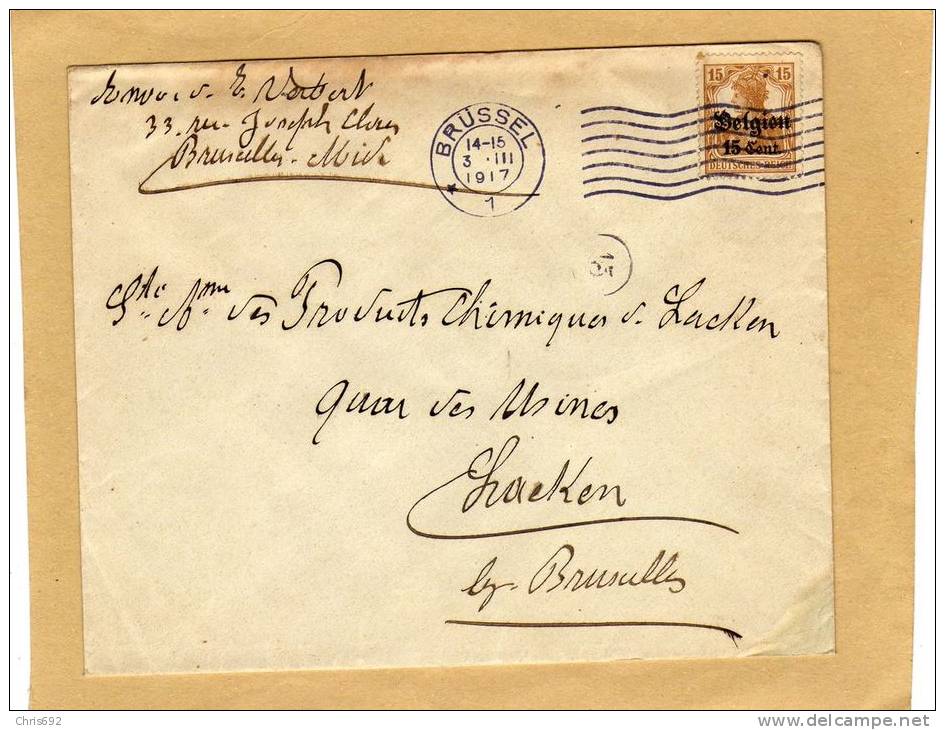 Envoi de E. Verbert
33. rue Joseph Claes
Bruxelles-Midi
BRÜSSEL
14-15
3 . III
1917
* 1
15 15
Belgien
15 Cent.
DEUTSCHES REICH
Sté Ame des Produits Chimiques de Laeken
Quai des Usines
Laeken
lez-Bruxelles
Chris692
www.delcampe.net